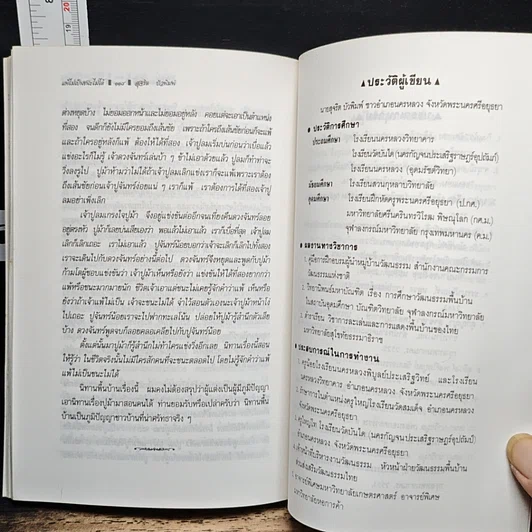 แพ้ไม่เป็นชนะไม่ได้ ▲ ๑๑๙ ▲ สุจริต บัวพิมพ์
ต่างหยุดบ้าง ไม่ยอมออกหน้าและไม่ยอมอยู่หลัง คอยแต่จะเอาเป็นตำแหน่ง
ที่สอง จนดึกก็ยังไม่มีใครยอมถึงเส้นชัย เพราะถ้าใครถึงเส้นชัยก่อนก็จะแพ้
และถ้าใครอยู่หลังก็แพ้ ต้องเอาที่สองให้ได้ เจ้าปูลมเริ่มบ่นก่อนว่าเบื่อแล้ว
แข่งอะไรก็ไม่รู้ เจ้าดวงจันทร์เอนบ้า ๆ ข้าไม่เอาด้วยแล้ว ปูลมก็ทำท่าจะ
วิ่งลงรูไป ปูม้าห้ามว่าไม่ได้ถ้าเจ้าปูลมเลิกแข่งเราก็จะแพ้เพราะเราต้อง
ถึงเส้นชัยก่อนเจ้าปูจันทร์น้อยแน่ ๆ เราก็แพ้ เราต้องการได้ที่สองเจ้าปู
ลมอย่าเพิ่งเลิก
เจ้าปูลมเกรงใจปูม้า จึงอยู่แข่งขันต่ออีกจนเที่ยงคืนดวงจันทร์ลอย
อยู่ตรงหัว ปูม้าก็บ่นเอือมเสียงว่า พอแล้วไม่เอาแล้ว เราก็เบื่อที่สุด เจ้าปูลม
เลิกก็เลิกเถอะ เราไม่เอาแล้ว ปูจันทร์น้อยบอกว่าเจ้าจะเลิกไม่เลิกไปทั้งสอง
เราจะเดินไปกับดวงจันทร์อย่างนี้ตลอดไป ดวงจันทร์จึงหยุดและพูดกับปูม้า
ก้ามโตผู้ชอบแข่งขันว่า เจ้าปูม้าเห็นหรือยัง แข่งขันให้ได้ที่สองยากกว่า
แพ้หรือชนะมากมายนัก ชีวิตเจ้าเอาแต่ชนะไม่เคยรู้จักคำว่าแพ้ เห็นหรือ
ยังว่าถ้าเจ้าแพ้ไม่เป็น เจ้าจะชนะไม่ได้ จำไว้สอนตัวเองนะเจ้าปูม้าหน้าโง่
ไปเถอะ ปูจันทร์น้อยเราจะไปฟากทะเลโน้น ปล่อยให้ปูม้ารู้สำนึกตัวเสีย
บ้าง ดวงจันทร์พูดจบก็ลอยคลอเคลียไปกับปูจันทร์น้อย
ตั้งแต่นั้นมาปูม้าก็รู้สำนึกไม่ท้าใครแข่งวิ่งอีกเลย นิทานเรื่องนี้สอน
ให้รู้ว่า ในชีวิตจริงนั้นไม่มีใครสักคนที่จะชนะตลอดไป โดยไม่รู้จักคำว่าแพ้
แพ้ไม่เป็นชนะไม่ได้
นิทานพื้นบ้านเรื่องนี้ ผมคงไม่ต้องสรุปว่าผู้แต่งเป็นผู้มีภูมิปัญญา
เอานิทานเรื่องปูม้ามาสอนคนได้ ท่านยอมรับหรือเปล่าครับว่า นิทานพื้น
บ้านเป็นภูมิปัญญาชาวบ้านที่น่าศรัทธาจริง ๆ
▲ประวัติผู้เขียน▲
นายสุจริต บัวพิมพ์ ชาวอำเภอนครหลวง จังหวัดพระนครศรีอยุธยา
● ประวัติการศึกษา
ประถมศึกษา โรงเรียนนครหลวงวิทยาคาร
โรงเรียนวัดบันได (นครกัญจนประเสริฐราษฎร์อุปถัมภ์)
โรงเรียนนครหลวง (อุดมรัชต์วิทยา)
มัธยมศึกษา โรงเรียนสวนกุหลาบวิทยาลัย
อุดมศึกษา โรงเรียนฝึกหัดครูพระนครศรีอยุธยา (ป.กศ.)
มหาวิทยาลัยศรีนครินทรวิโรฒ พิษณุโลก (กศ.บ.)
จุฬาลงกรณ์มหาวิทยาลัย กรุงเทพมหานคร (ค.ม.)
● ผลงานทางวิชาการ
1. คู่มือการฝึกอบรมผู้นำหมู่บ้านวัฒนธรรม สำนักงานคณะกรรมการ
วัฒนธรรมแห่งชาติ
2. วิทยานิพนธ์มหาบัณฑิต เรื่อง การศึกษาวัฒนธรรมพื้นบ้าน
ในสถาบันอุดมศึกษา บัณฑิตวิทยาลัย จุฬาลงกรณ์มหาวิทยาลัย
3. ตำราเรียน วิชาการละเล่นและการแสดงพื้นบ้านของไทย
มหาวิทยาลัยสุโขทัยธรรมาธิราช
● ประสบการณ์ในการทำงาน
1. ครูน้อยโรงเรียนนครหลวงพิบูลย์ประเสริฐวิทย์ และโรงเรียน
นครหลวงวิทยาคาร อำเภอนครหลวง จังหวัดพระนครศรีอยุธยา
2. รักษาการในตำแหน่งครูใหญ่โรงเรียนวัดสมเด็จ อำเภอนครหลวง
จังหวัดพระนครศรีอยุธยา
3. ครูใหญ่โท โรงเรียนวัดบันได (นครกัญจนประเสริฐราษฎร์อุปถัมภ์)
อำเภอนครหลวง จังหวัดพระนครศรีอยุธยา
4. เจ้าหน้าที่บริหารงานวัฒนธรรม หัวหน้าฝ่ายวัฒนธรรมพื้นบ้าน
ส่งเสริมวัฒนธรรมไทย
5. อาจารย์พิเศษมหาวิทยาลัยเกษตรศาสตร์ อาจารย์พิเศษ
มหาวิทยาลัยหอการค้า